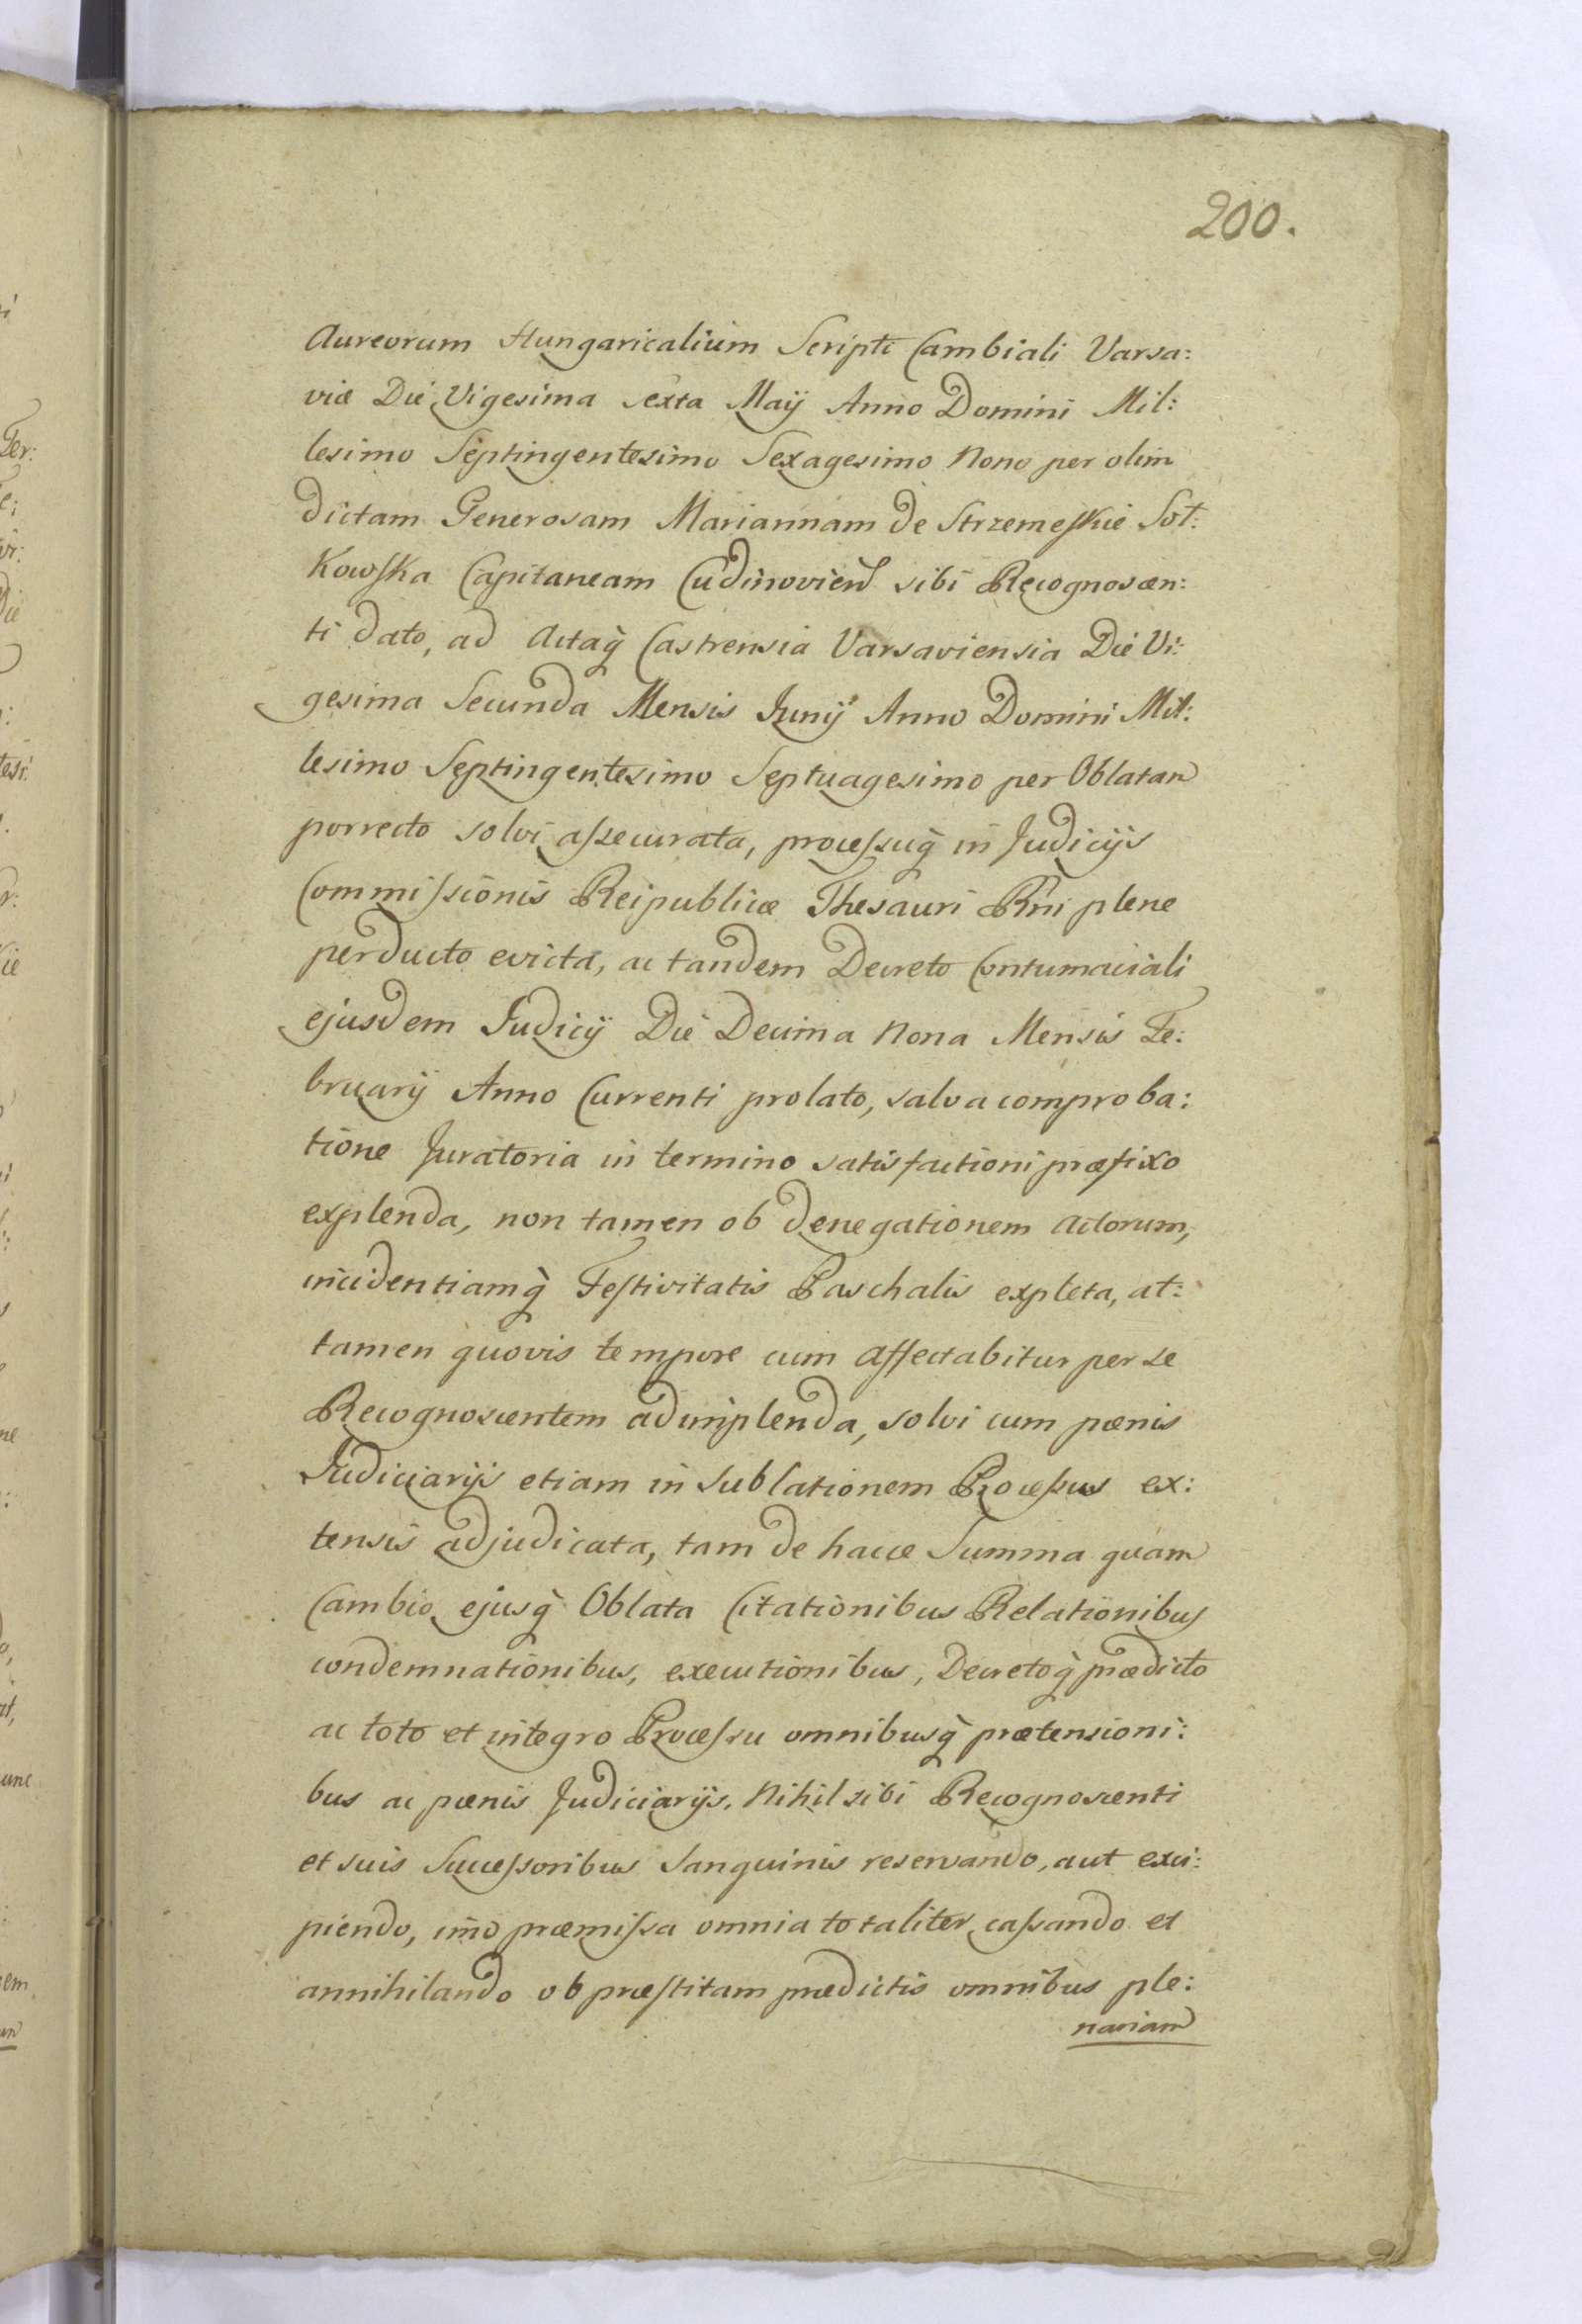 200.
Aureorum Hungaricalium Scripti Cambiali Varsa:
viæ Die Vigesima sexta Maÿ Anno Domini Mil:
lesimo Septingentesimo Sexagesimo Nono per olim
dictam Generosam Mariannam de Strzemeskie Sot:
Kowska Capitaneam Cudinovien̄ sibi Recognoscen:
ti dato, ad Actaq̀ Castrensia Varsaviensia Die Vi:
gesima Secunda Mensis Junÿ Anno Domini Mil:
lesimo Septingentesimo Septuagesimo per Oblatam
porrecto solvi assecurata, processuq̀ in Judicÿs
Commissionis Reipublicæ Thesauri Rñi plene
perducto evicta, ac tandem Decreto Contumaciali
ejusdem Judicÿ Die Decima Nona Mensis Fe:
bruarÿ Anno Currenti prolato, salva comproba:
tione Juratoria in termino satisfactioni præfixo
explenda, non tamen ob denegationem Actorum,
incidentiamq̀ Festivitatis Paschalis expleta, at:
tamen quovis tempore cum affectabitur per se
Recognoscentem adimplenda, solvi cum pænis
Judiciarÿs etiam in Sublationem Processus ex:
tensis adjudicata, tam de hacce Summa quam
Cambio ejusq̀ Oblata Citationibus Relationibus
condemnationibus, executionibus, Decretoq̀ prædicto
ac toto et integro Processu omnibusq̀ prætensioni:
bus ac pænis Judiciarÿs. Nihil sibi Recognoscenti
et suis Successoribus Sanguinis reservando, aut exci:
piendo, im̄o præmissa omnia totaliter cassando et
annihilando ob præstitam prædictis omnibus ple:
nariam